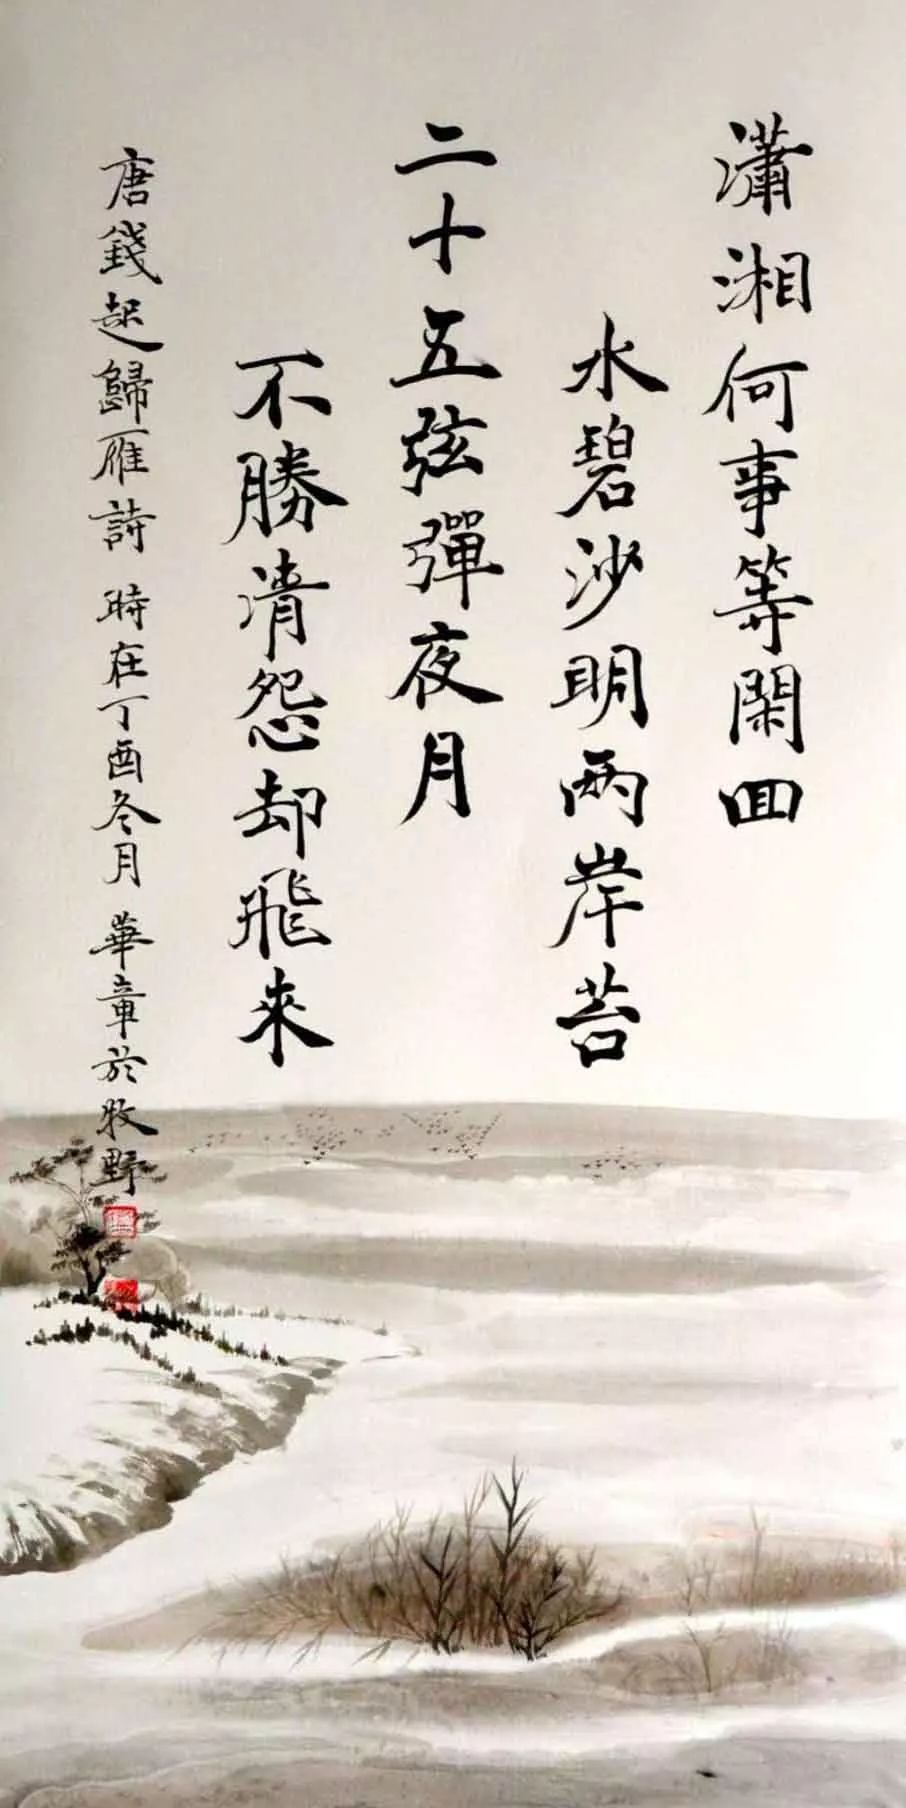 瀟湘何事等閑回
水碧沙明兩岸苔
二十五弦彈夜月
不勝清怨却飛來
唐錢起歸雁詩 時在丁酉冬月 華章於牧野